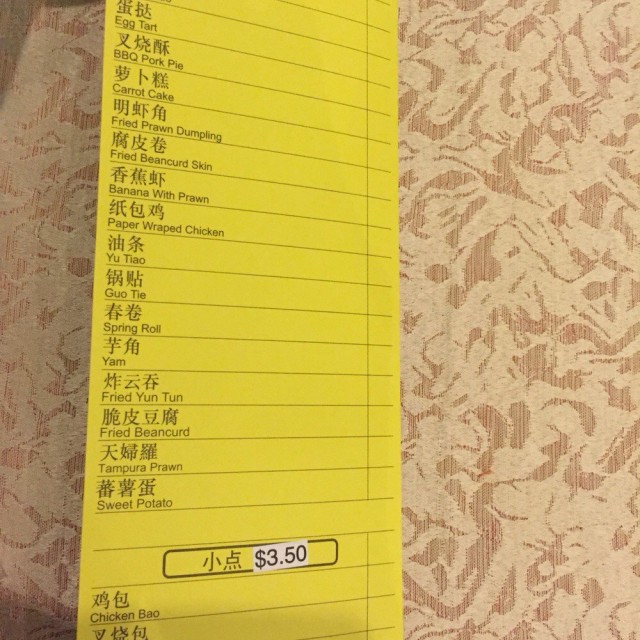 蛋挞
Egg Tart
叉烧酥
BBQ Pork Pie
萝卜糕
Carrot Cake
明虾角
Fried Prawn Dumpling
腐皮卷
Fried Beancurd Skin
香蕉虾
Banana With Prawn
纸包鸡
Paper Wraped Chicken
油条
Yu Tiao
锅贴
Guo Tie
春卷
Spring Roll
芋角
Yam
炸云吞
Fried Yun Tun
脆皮豆腐
Fried Beancurd
天婦羅
Tampura Prawn
蕃薯蛋
Sweet Potato
小点 $3.50
鸡包
Chicken Bao
叉烧包